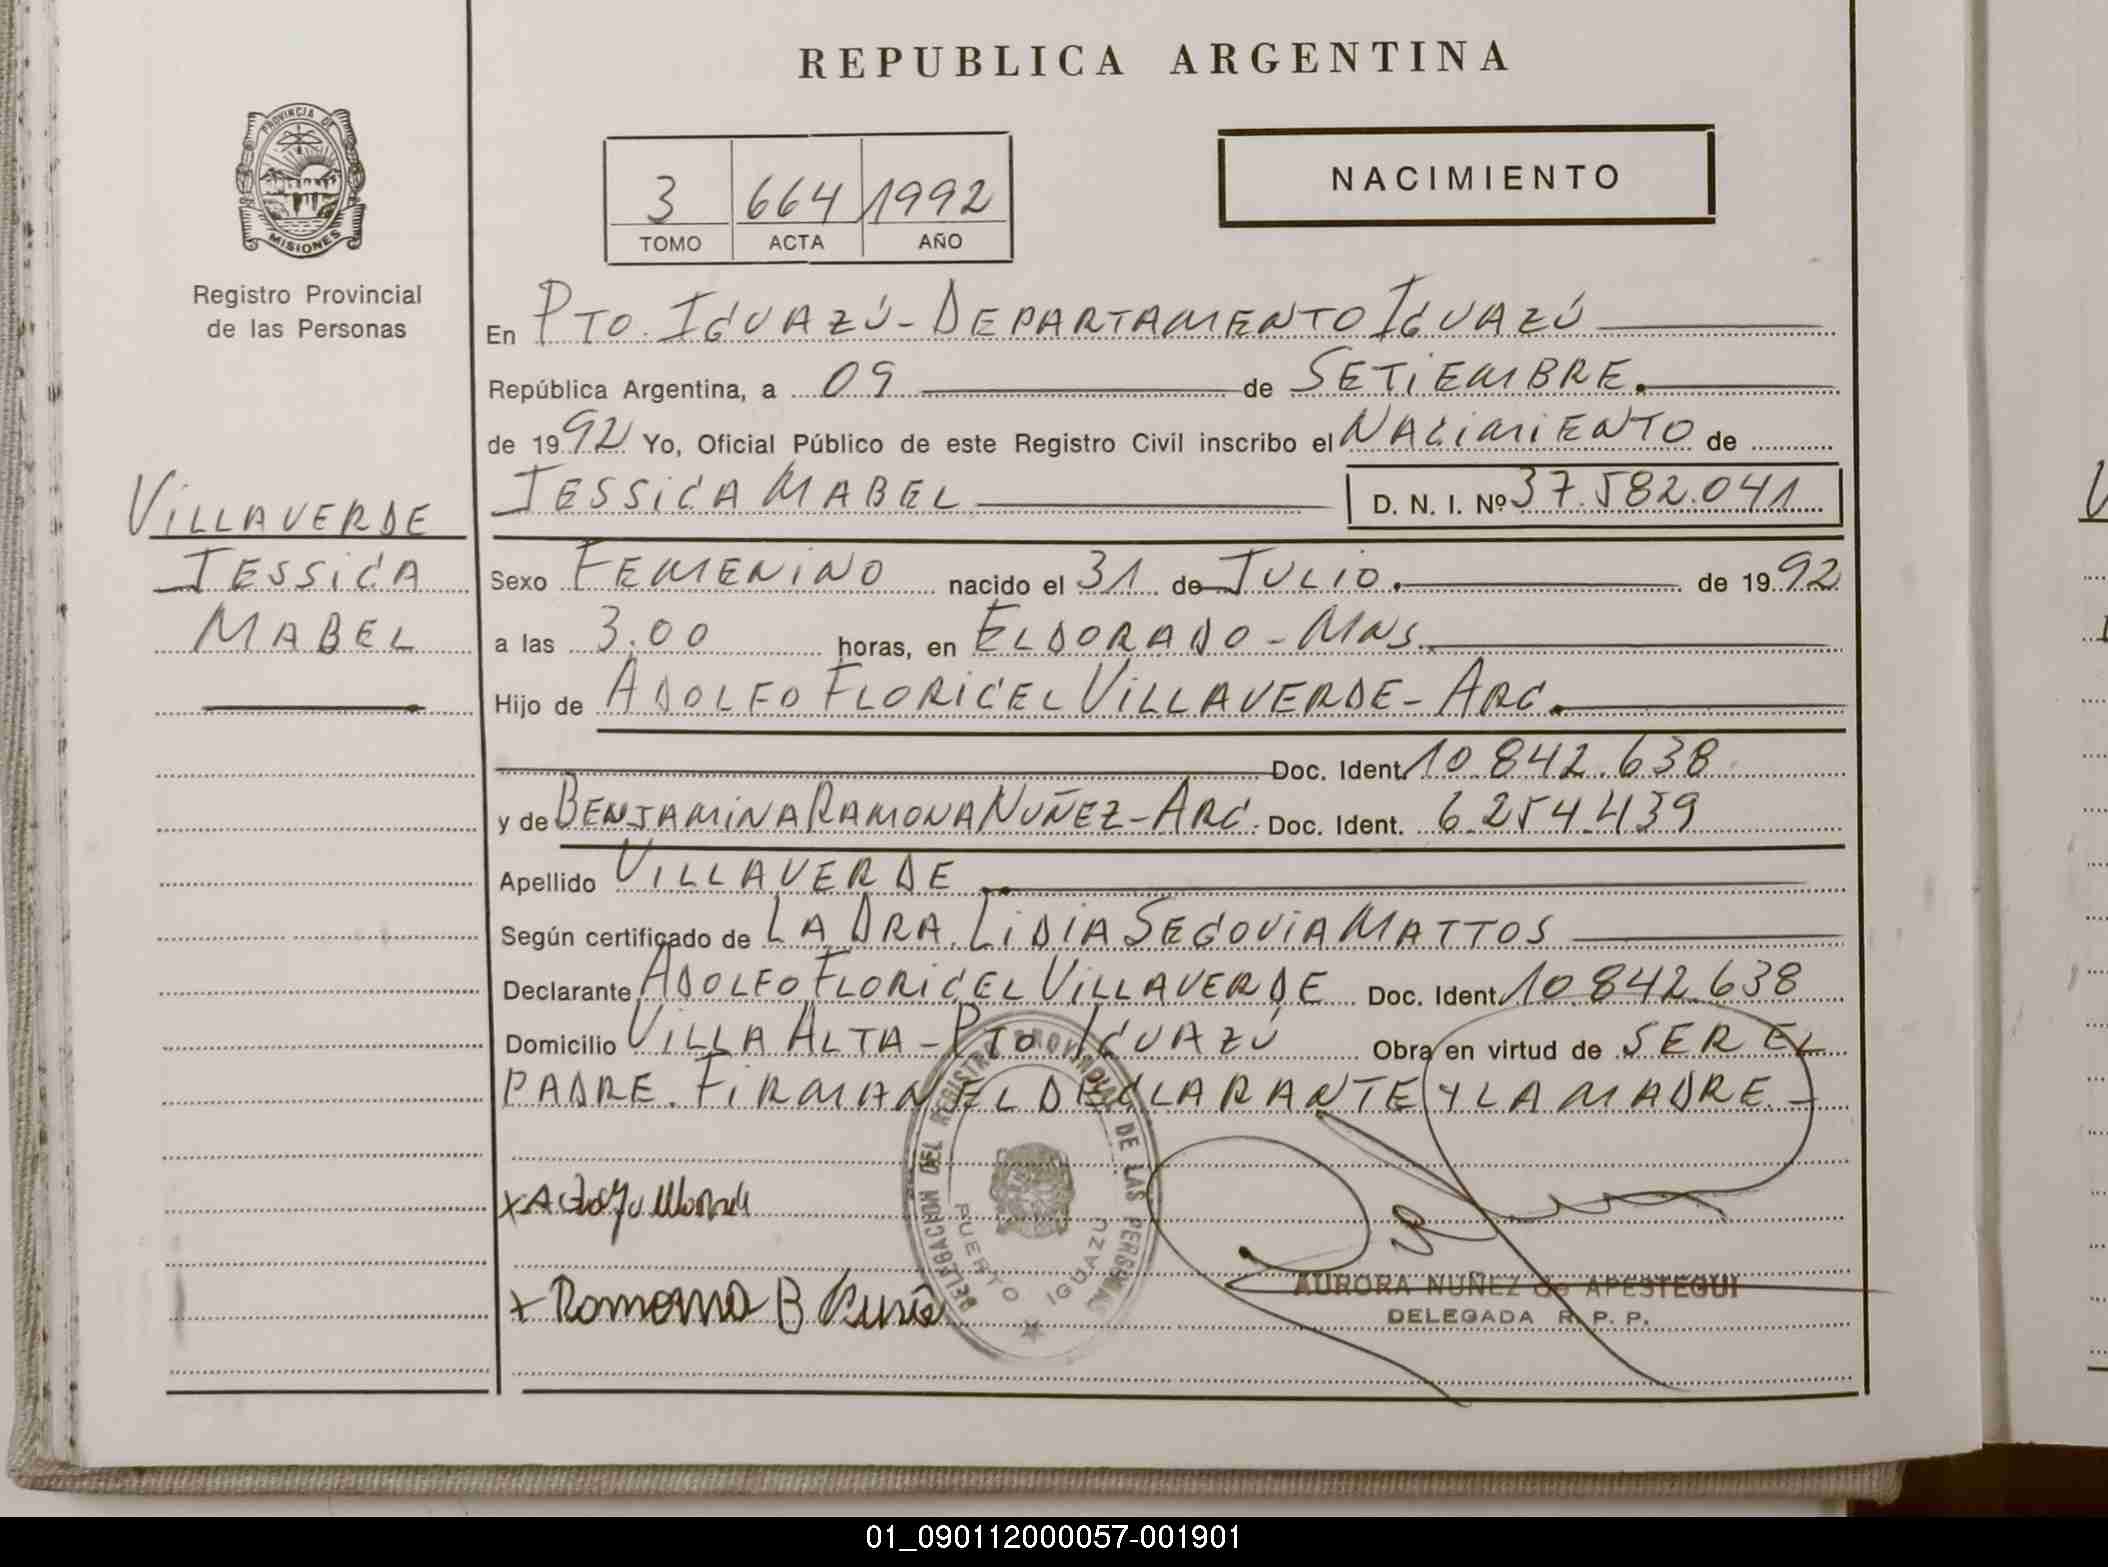 REPUBLICA ARGENTINA
PROVINCIA DE
MISIONES
Registro Provincial
de las Personas
3 664 1992
TOMO ACTA AÑO
NACIMIENTO
VILLAVERDE
JESSICA
MABEL
En PTO. IGUAZÚ - DEPARTAMENTO IGUAZÚ
República Argentina, a 09 de SETIEMBRE.
de 1992 Yo, Oficial Público de este Registro Civil inscribo el NACIMIENTO de
JESSICA MABEL D. N. I. Nº 37.582.041
Sexo FEMENINO nacido el 31 de JULIO. de 1992
a las 3.00 horas, en ELDORADO - MNS.
Hijo de ADOLFO FLORICEL VILLAVERDE - ARG.
Doc. Ident. 10.842.638
y de BENJAMINA RAMONA NUÑEZ - ARG. Doc. Ident. 6.254.439
Apellido VILLAVERDE.
Según certificado de LA DRA. LIDIA SEGOVIA MATTOS
Declarante ADOLFO FLORICEL VILLAVERDE Doc. Ident. 10.842.638
Domicilio VILLA ALTA - PTO IGUAZÚ Obra en virtud de SER EL
PADRE. FIRMAN EL DECLARANTE Y LA MADRE -
DELEGACION DEL REGISTRO PROVINCIAL DE LAS PERSONAS
PUERTO IGUAZU
x Ramona B
AURORA NUÑEZ de APESTEGUI
DELEGADA R. P. P.
01_090112000057-001901